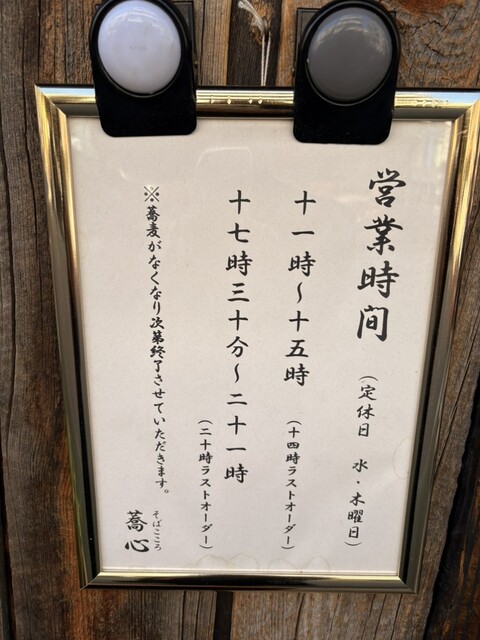 営業時間
(定休日 水・木曜日)
十一時～十五時
(十四時ラストオーダー)
十七時三十分～二十一時
(二十時ラストオーダー)
※蕎麦がなくなり次第終了させていただきます。
そばこころ
蕎心